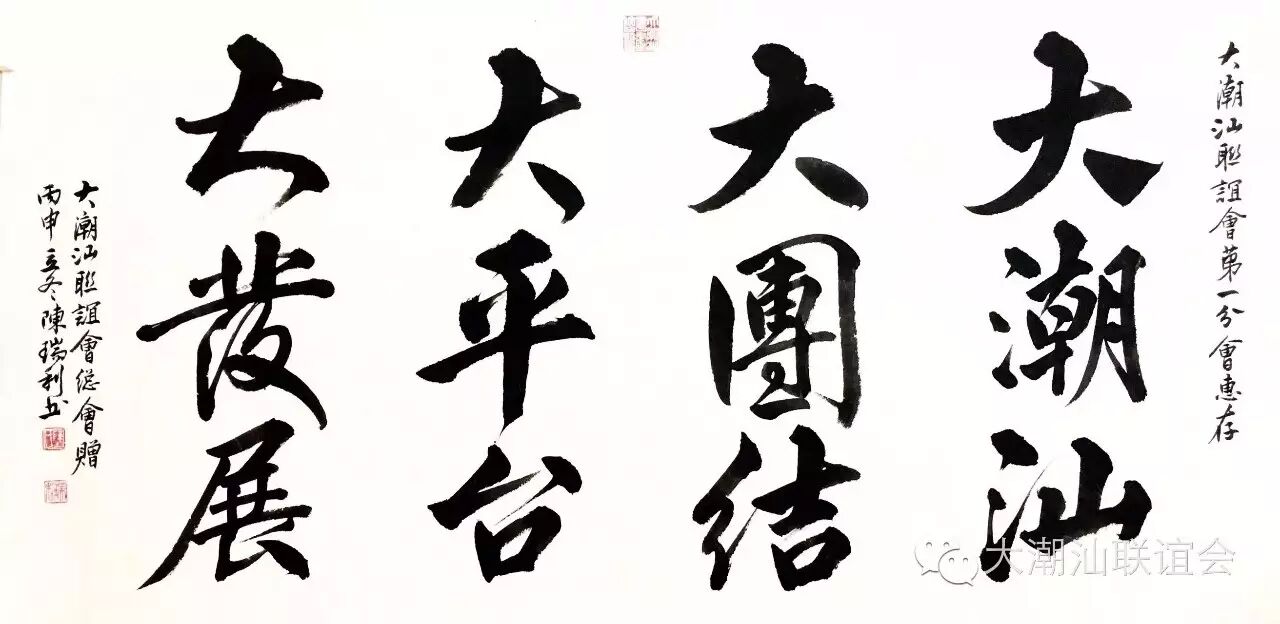 大潮汕聯誼會第一分會惠存
大潮汕
大團結
大平台
大發展
大潮汕聯誼會總會贈
丙申立冬陳瑞利书
大潮汕联谊会